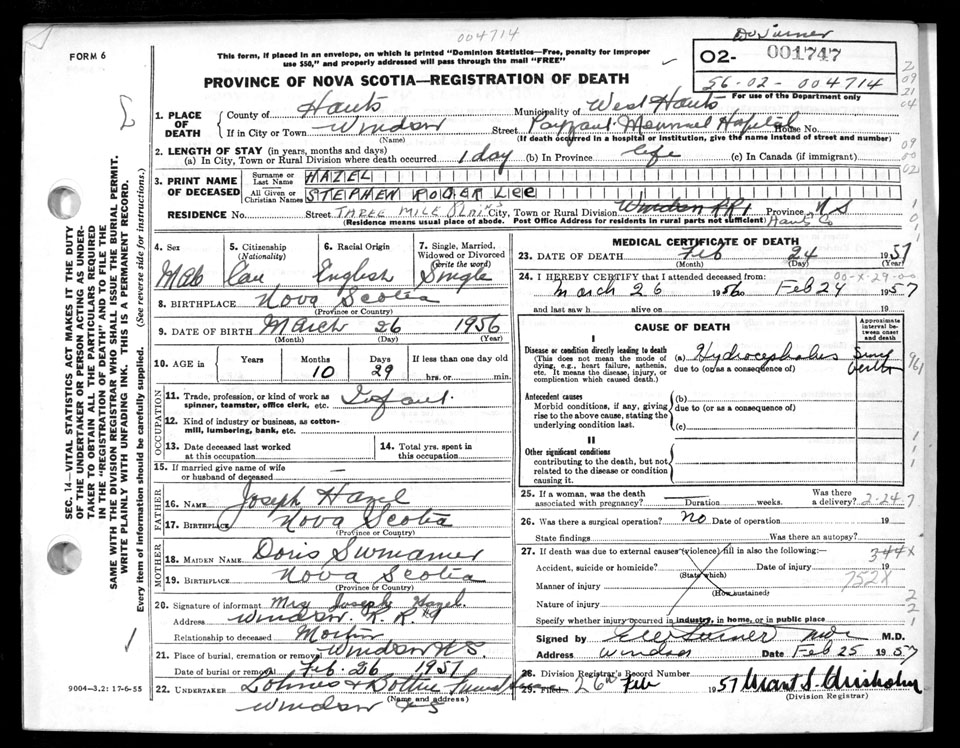 004714
Dr Turner
FORM 6
This form, if placed in an envelope, on which is printed "Dominion Statistics—Free, penalty for improper
use $50," and properly addressed will pass through the mail "FREE"
O2- 001747
56-02-004714
For use of the Department only
PROVINCE OF NOVA SCOTIA—REGISTRATION OF DEATH
1. PLACE OF DEATH
County of Hants Municipality of West Hants
If in City or Town Windsor Street Payzant Memorial Hospital House No.
(Name) (If death occurred in a hospital or institution, give the name instead of street and number)
2. LENGTH OF STAY (in years, months and days)
(a) In City, Town or Rural Division where death occurred 1 day (b) In Province life (c) In Canada (if immigrant)
3. PRINT NAME OF DECEASED
Surname or Last Name HAZEL
All Given or Christian Names STEPHEN ROGER LEE
RESIDENCE No. Street THREE MILE PLAINS City, Town or Rural Division Windsor RR1 Province NS
(Residence means usual place of abode. Post Office Address for residents in rural parts not sufficient) Hants Co
4. Sex Male
5. Citizenship (Nationality) Can
6. Racial Origin English
7. Single, Married, Widowed or Divorced (write the word) Single
8. BIRTHPLACE Nova Scotia
(Province or Country)
9. DATE OF BIRTH March 26 1956
(Month) (Day) (Year)
10. AGE in Years Months 10 Days 29 If less than one day old
hrs. or min.
OCCUPATION
11. Trade, profession, or kind of work as
spinner, teamster, office clerk, etc. Infant.
12. Kind of industry or business, as cotton-
mill, lumbering, bank, etc.
13. Date deceased last worked
at this occupation
14. Total yrs. spent in
this occupation
15. If married give name of wife
or husband of deceased —
FATHER
16. NAME Joseph Hazel
17. BIRTHPLACE Nova Scotia
(Province or Country)
MOTHER
18. MAIDEN NAME Doris
19. BIRTHPLACE Nova Scotia
(Province or Country)
20. Signature of informant Mrs Joseph Hazel.
Address Windsor R.R. #1
Relationship to deceased Mother
21. Place of burial, cremation or removal Windsor N.S.
Date of burial or removal Feb. 26 1957
22. UNDERTAKER
(Name and address)
Windsor NS
MEDICAL CERTIFICATE OF DEATH
23. DATE OF DEATH Feb 24 1957
(Month) (Day) (Year)
00-x-29-00
24. I HEREBY CERTIFY that I attended deceased from:
March 26 1956 to Feb 24 1957
and last saw h alive on 19
CAUSE OF DEATH
Approximate interval between onset and death
I
Disease or condition directly leading to death
(This does not mean the mode of
dying, e.g., heart failure, asthenia,
etc. It means the disease, injury, or
complication which caused death.)
(a) Hydrocephalus Since birth
due to (or as a consequence of)
Antecedent causes
Morbid conditions, if any, giving
rise to the above cause, stating the
underlying condition last.
(b)
due to (or as a consequence of)
(c)
II
Other significant conditions
contributing to the death, but not
related to the disease or condition
causing it.
25. If a woman, was the death
associated with pregnancy? Duration weeks. Was there a delivery?
2-24-7
26. Was there a surgical operation? No Date of operation 19
State findings Was there an autopsy?
27. If death was due to external causes (violence) fill in also the following:
344X
Accident, suicide or homicide? Date of injury 19
(State which)
752X
Manner of injury
(How sustained)
Nature of injury
Specify whether injury occurred in industry, in home, or in public place
Signed by M.D.
Address Windsor Date Feb 25 1957
28. Division Registrar's Record Number
29. Filed 26th Feb 1957 Grant S. Chisholm
(Division Registrar)
SEC. 14—VITAL STATISTICS ACT MAKES IT THE DUTY
OF THE UNDERTAKER OR PERSON ACTING AS UNDER-
TAKER TO OBTAIN ALL THE PARTICULARS REQUIRED
IN THE "REGISTRATION OF DEATH" AND TO FILE THE
SAME WITH THE DIVISION REGISTRAR WHO SHALL ISSUE THE BURIAL PERMIT.
WRITE PLAINLY WITH UNFADING INK. THIS IS A PERMANENT RECORD.
Every item of information should be carefully supplied. (See reverse side for instructions.)
9004-3.2: 17-6-55